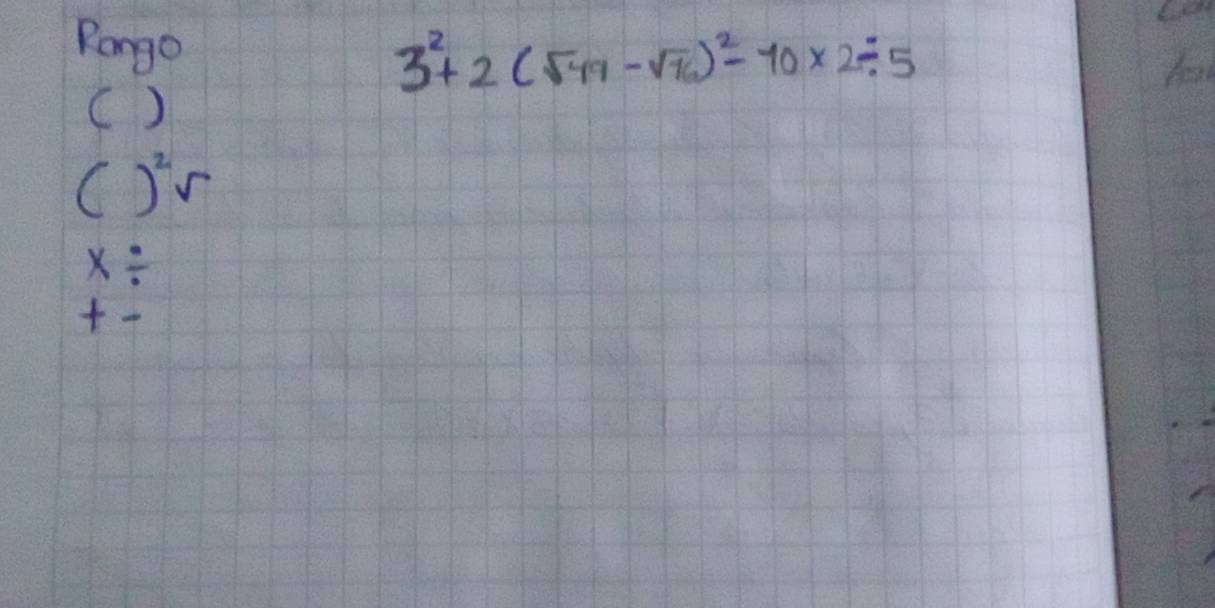 Rango
3² + 2 (√49 - √16)² - 10 × 2 ÷ 5
( )
( )² √
× ÷
+ -